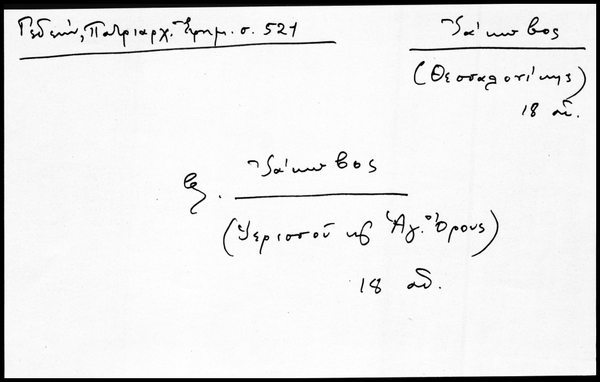 Γεδεών, Πατριαρχ. Ἐφημ. σ. 521
Ἰάκωβος
(Θεσσαλονίκης)
18 αἰ.
βλ. Ἰάκωβος
(Ἱερισσοῦ κ Ἁγ. Ὄρους)
18 αἰ.